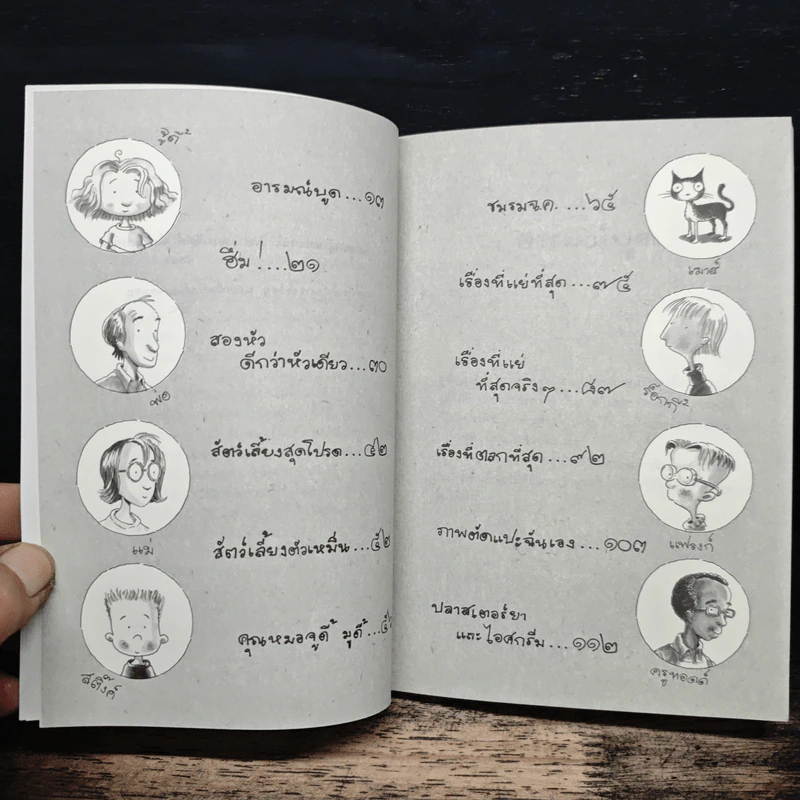 จูดี้
อารมณ์บูด...๑๓
ฮึ่ม!....๒๑
สองหัว
ดีกว่าหัวเดียว...๓๐
พ่อ
สัตว์เลี้ยงสุดโปรด...๔๒
แม่
สัตว์เลี้ยงตัวเหม็น...๕๒
คุณหมอจูดี้ มูดี้...
สติ๊งค์
ชมรมฉ.ค. ...๖๕
เมาส์
เรื่องที่แย่ที่สุด...๗๕
เรื่องที่แย่
ที่สุดจริงๆ...๘๗
ร็อกกี้
เรื่องที่ตลกที่สุด...๙๒
ภาพตัดแปะฉันเอง...๑๐๓
แฟรงก์
ปลาสเตอร์ยา
และไอศกรีม...๑๑๒
ครูทอดด์